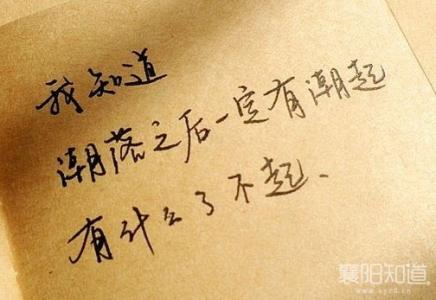 我知道
潮落之后一定有潮起
有什么了不起、
襄阳知道
www.xyzd.cn